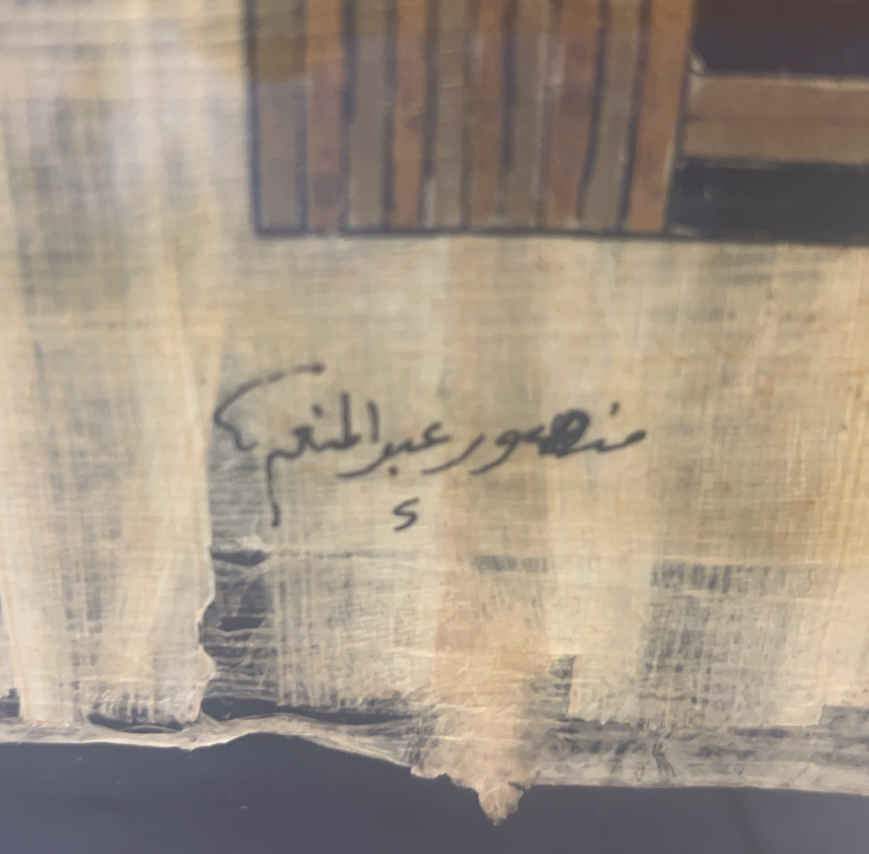 منصور عبد المنعم
s